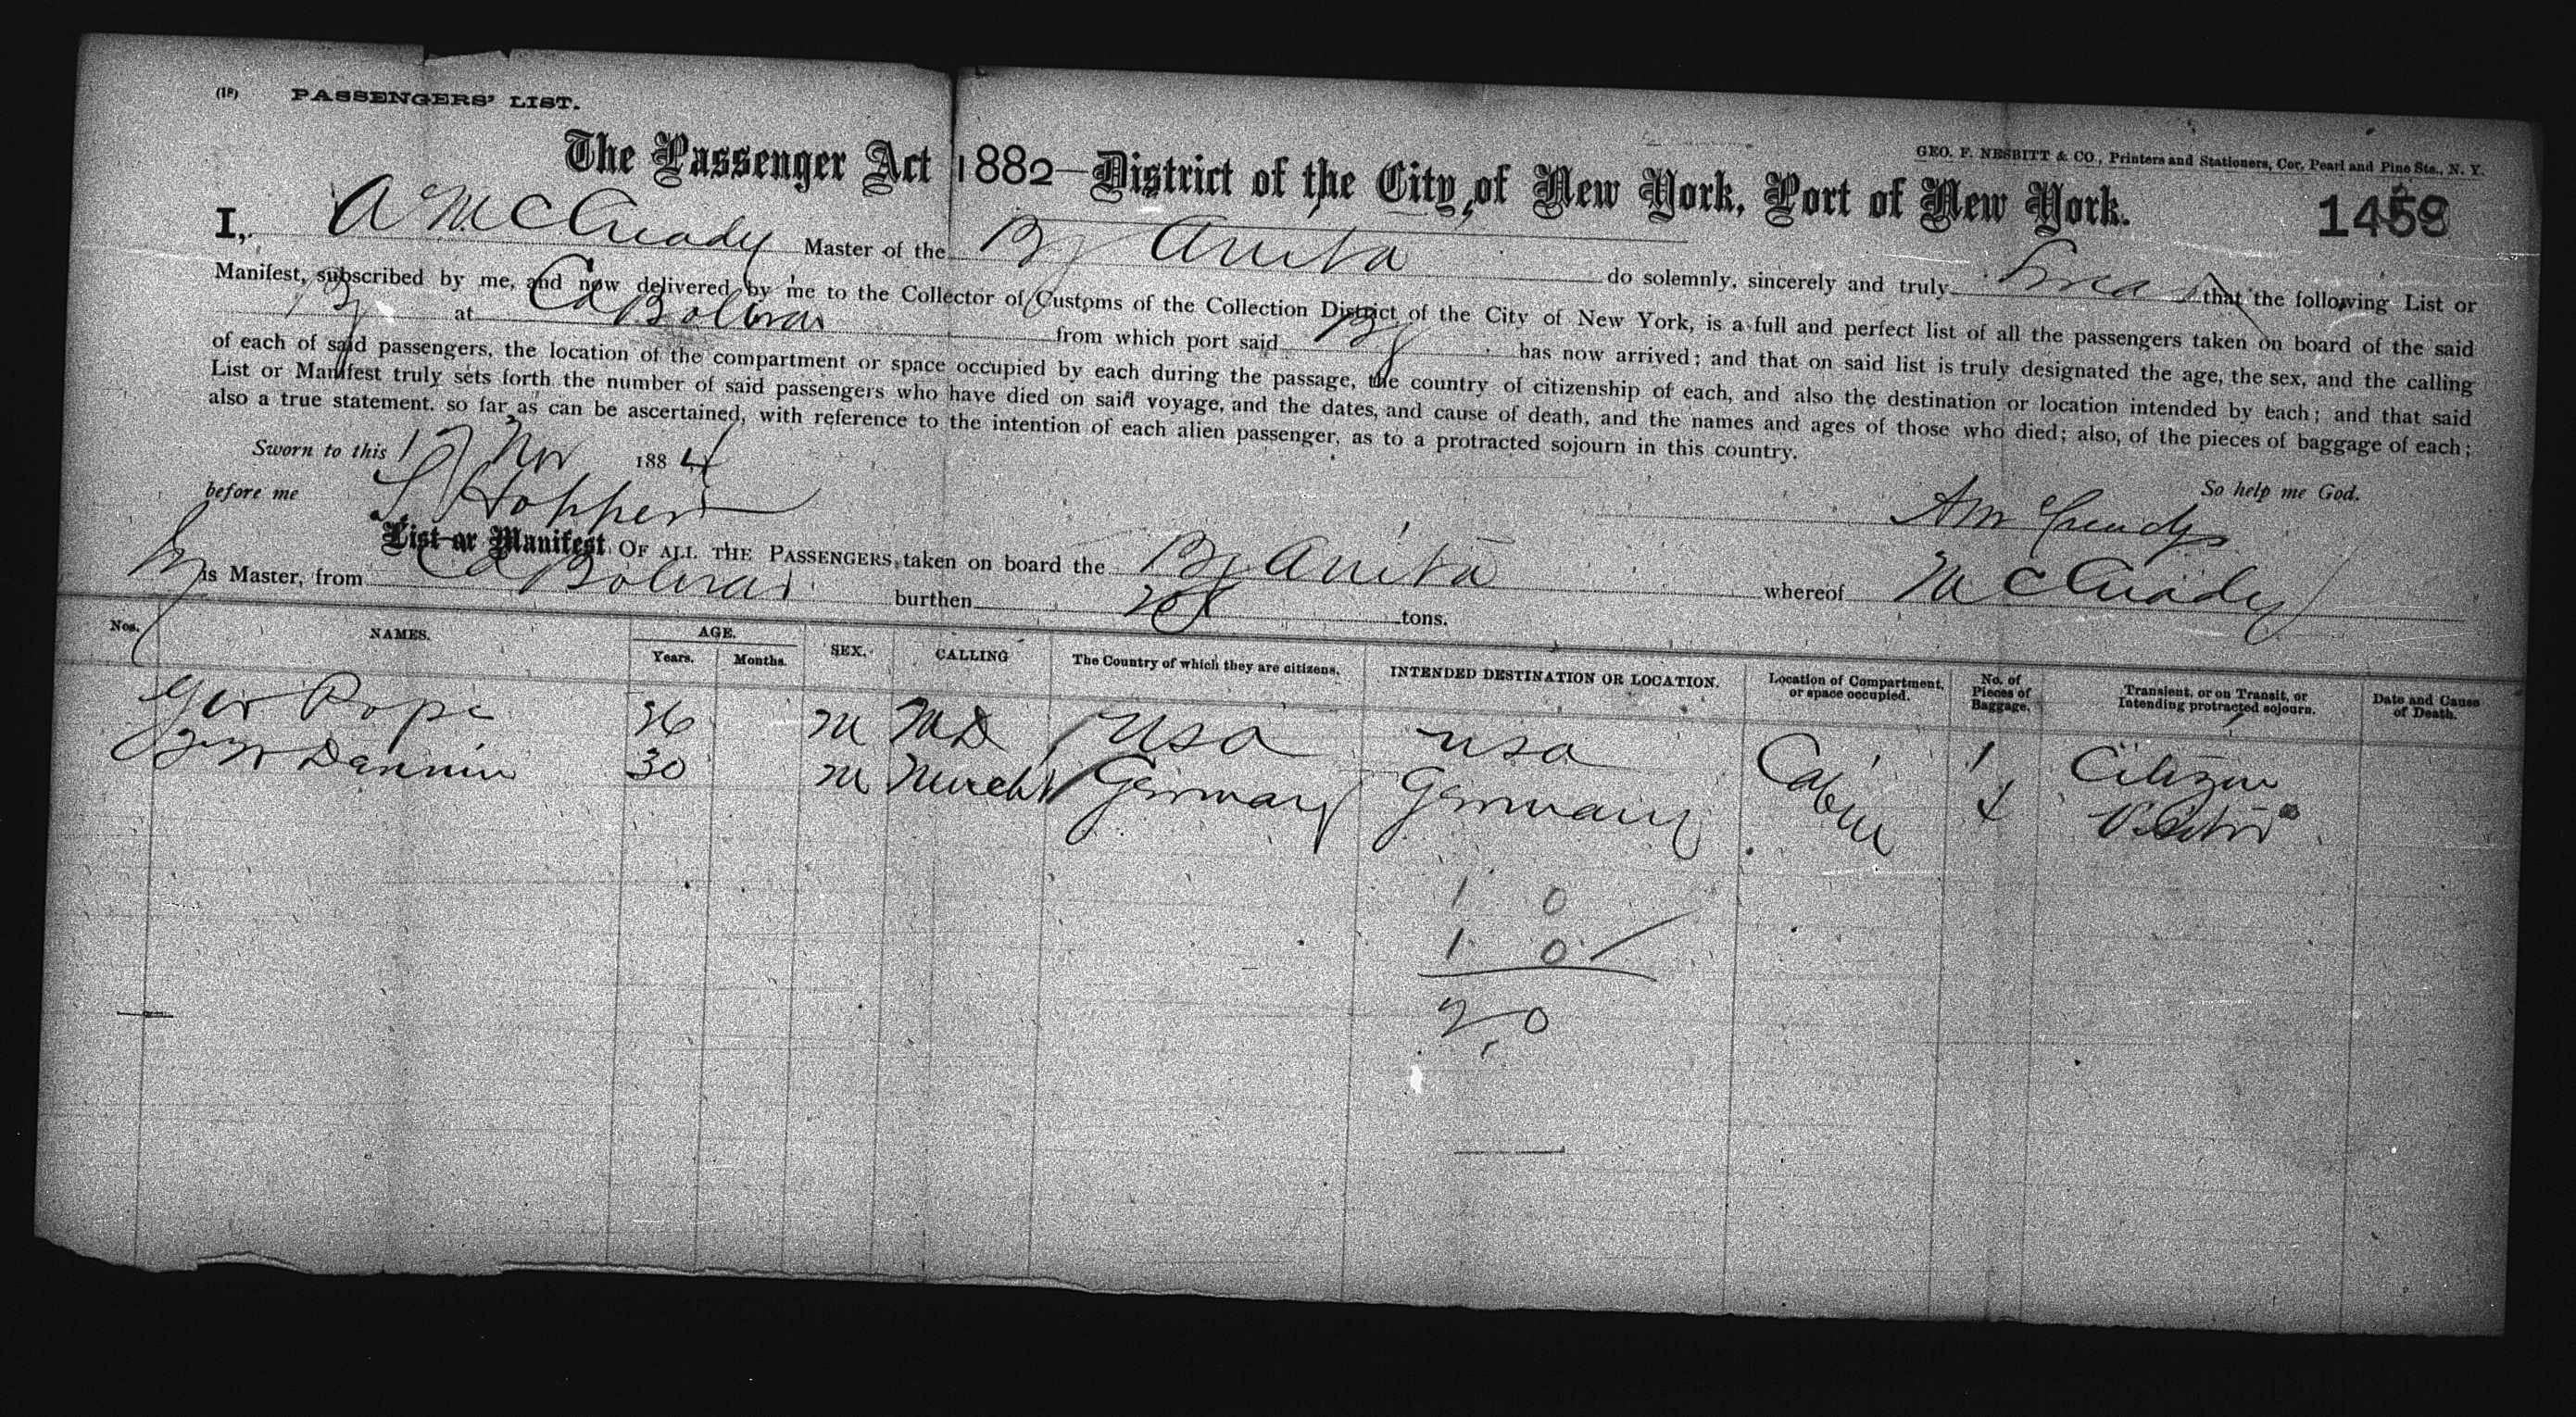 (18) PASSENGERS' LIST.
GEO. F. NESBITT & CO., Printers and Stationers, Cor. Pearl and Pine Sts., N. Y.
The Passenger Act 1882—District of the City of New York, Port of New York.
I, A McCready Master of the Bg Anita do solemnly, sincerely and truly Swear that the following List or
Manifest, subscribed by me, and now delivered by me to the Collector of Customs of the Collection District of the City of New York, is a full and perfect list of all the passengers taken on board of the said
Bg at Cd Bolivar from which port said Bg has now arrived; and that on said list is truly designated the age, the sex, and the calling
of each of said passengers, the location of the compartment or space occupied by each during the passage, the country of citizenship of each, and also the destination or location intended by each; and that said
List or Manifest truly sets forth the number of said passengers who have died on said voyage, and the dates, and cause of death, and the names and ages of those who died; also, of the pieces of baggage of each;
also a true statement, so far as can be ascertained, with reference to the intention of each alien passenger, as to a protracted sojourn in this country.
Sworn to this 17 Nov 1884
So help me God.
before me S Hopper
A McCready
List or Manifest OF ALL THE PASSENGERS taken on board the Bg Anita whereof McCready
is Master, from Cd Bolivar burthen tons.
Nos. NAMES. AGE. Years. Months. SEX. CALLING The Country of which they are citizens. INTENDED DESTINATION OR LOCATION. Location of Compartment, or space occupied. No. of Pieces of Baggage. Transient, or on Transit, or Intending protracted sojourn. Date and Cause of Death.
Geo Pope 36 M MD USA USA Cabin 1 Citizen
Dannin 30 M Mercht Germany Germany
1 0
1 0
2 0